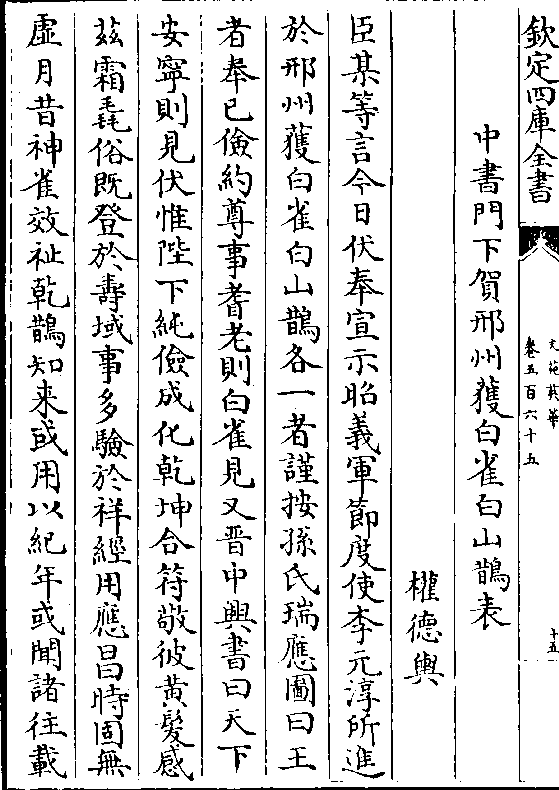 欽定四庫全書
文苑英華
卷五百六十五
十五
中書門下賀邢州獲白雀白山鵲表
權德輿
臣某等言今日伏奉宣示昭義軍節度使李元淳所進
於邢州獲白雀白山鵲各一者謹按孫氏瑞應圖曰王
者奉已儉約尊事耆老則白雀見又晉中興書曰天下
安寧則見伏惟陛下純儉成化乾坤合符敬彼黃髮感
兹霜毳俗既登於壽域事多驗於祥經用應昌時固無
虛月昔神雀效祉乾鵲知来或用以紀年或聞諸往載